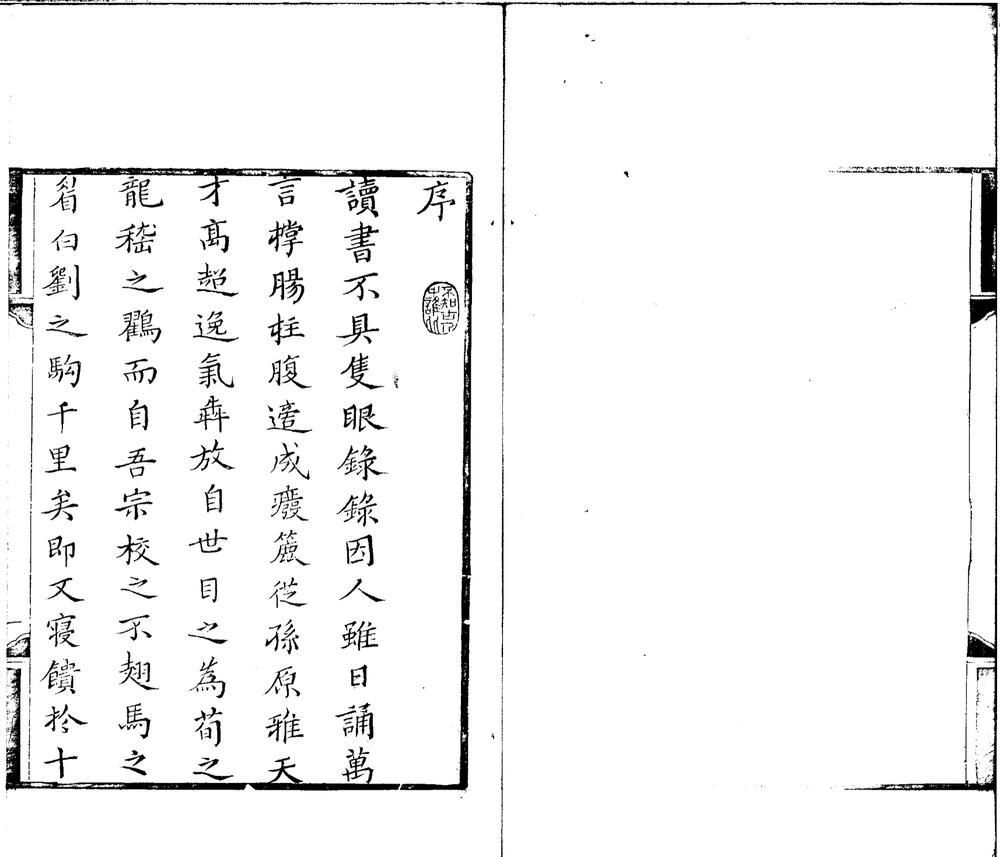 序
讀書不具隻眼錄錄因人雖日誦萬
言撐腸柱腹適成癈簏從孫原雅天
才高超逸氣犇放自世目之為荀之
龍嵇之鸖而自吾宗校之不翅馬之
眉白劉之駒千里矣即又寢饋扵十